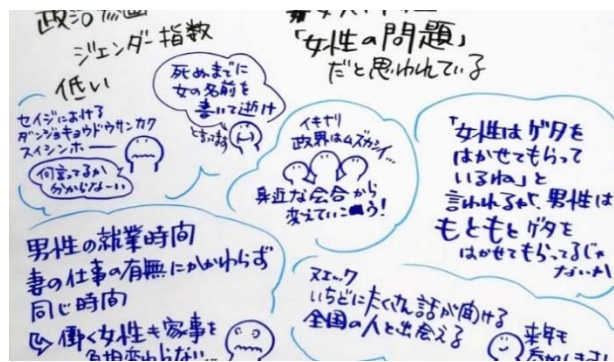 政治参画
ジェンダー指数
低い
「女性の問題」
だと思われている
死ぬまでに
女の名前を
書いて逝け
セイジにおける
ダンジョキョウドウサンカク
スイシンホー
何言ってるか
分からなーい
イキナリ
政界はムズカシイ…
身近な会合から
変えていこう!
「女性はゲタを
はかせてもらって
いるね」と
言われるが、男性は
もともとゲタを
はかせてもらってるじゃ
ないか
男性の就業時間
妻の仕事の有無にかかわらず
同じ時間
働く女性も家事を
負担変わらない…
ヌエック
いちどにたくさん話が聞ける
全国の人と出会える
来年も